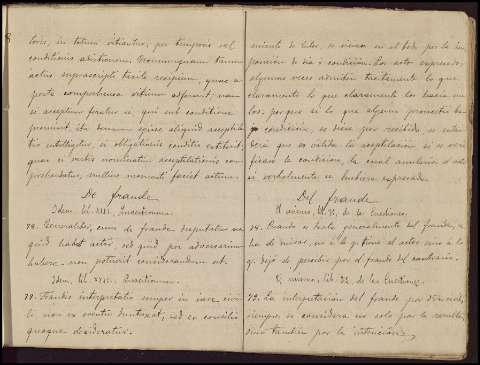 toris, in totum vitiantur, per temporis vel
conditionis adjectionem. Nonnumquam tamen
actus suprascripti tacite recipiunt, quae a
perte comprehensa vitium adferunt, nam
si acceptum feratur ei, qui sub conditione
promisit, ita demum egisse aliquid accepti
tio intelligitur, si obligationis conditio extiterit,
quae si verbis nominatim acceptilationis com
prehendatur, nullius momenti faciet actum.
De fraude
Idem, lib. XXII, Quaestionum.
78. Generaliter, cum de fraude disputatur, non
quid habet actor, sed quid per adversarium
habere non potuerit considerandum est.
Idem, lib. XXXI, Quaestionum.
79. Fraudis interpretatio semper in iure civi
li non ex eventu duntaxat, sed ex consilio
quoque desideratur.
miento de heder, se vician en el todo por la im
posicion de dia ó condicion. Los actos expresados,
algunas veces admiten tácitamente lo que
claramente
los, porque si lo que alguno prometió ba
jo condicion, se diese por recibido se enten
derá que es válida la aceptilacion si se veri
ficase la condicion, la cual anularia el acto
si verbalmente se hubiera expresado.
Del fraude
El mismo, lib. de las Cuestiones.
78. Cuando se trata generalmente del fraude, se
ha de mirar, no á lo q. tiene el actor, sino á lo
q. dejó de percibir por el fraude del contrario.
El mismo, lib. 32, de las Cuestiones.
79. La interpretacion del fraude por dro civil,
siempre se considera no solo por la resulta,
sino tambien por la intencion.